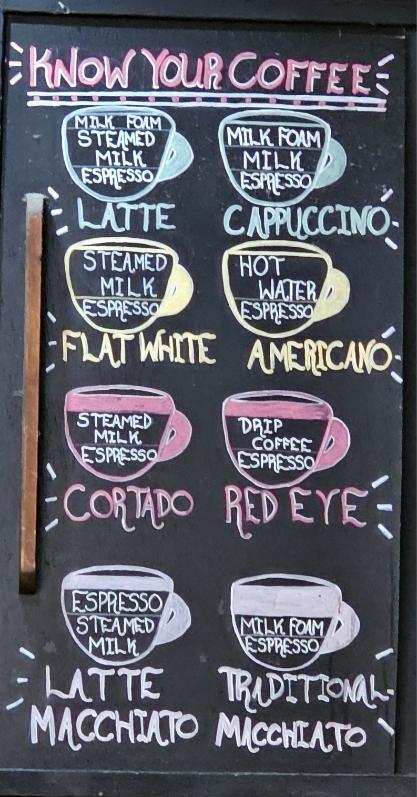 KNOW YOUR COFFEE
MILK FOAM
STEAMED
MILK
ESPRESSO
LATTE
MILK FOAM
MILK
ESPRESSO
CAPPUCCINO
STEAMED
MILK
ESPRESSO
FLAT WHITE
HOT
WATER
ESPRESSO
AMERICANO
STEAMED
MILK
ESPRESSO
CORTADO
DRIP
COFFEE
ESPRESSO
RED EYE
ESPRESSO
STEAMED
MILK
LATTE
MACCHIATO
MILK FOAM
ESPRESSO
TRADITIONAL
MACCHIATO